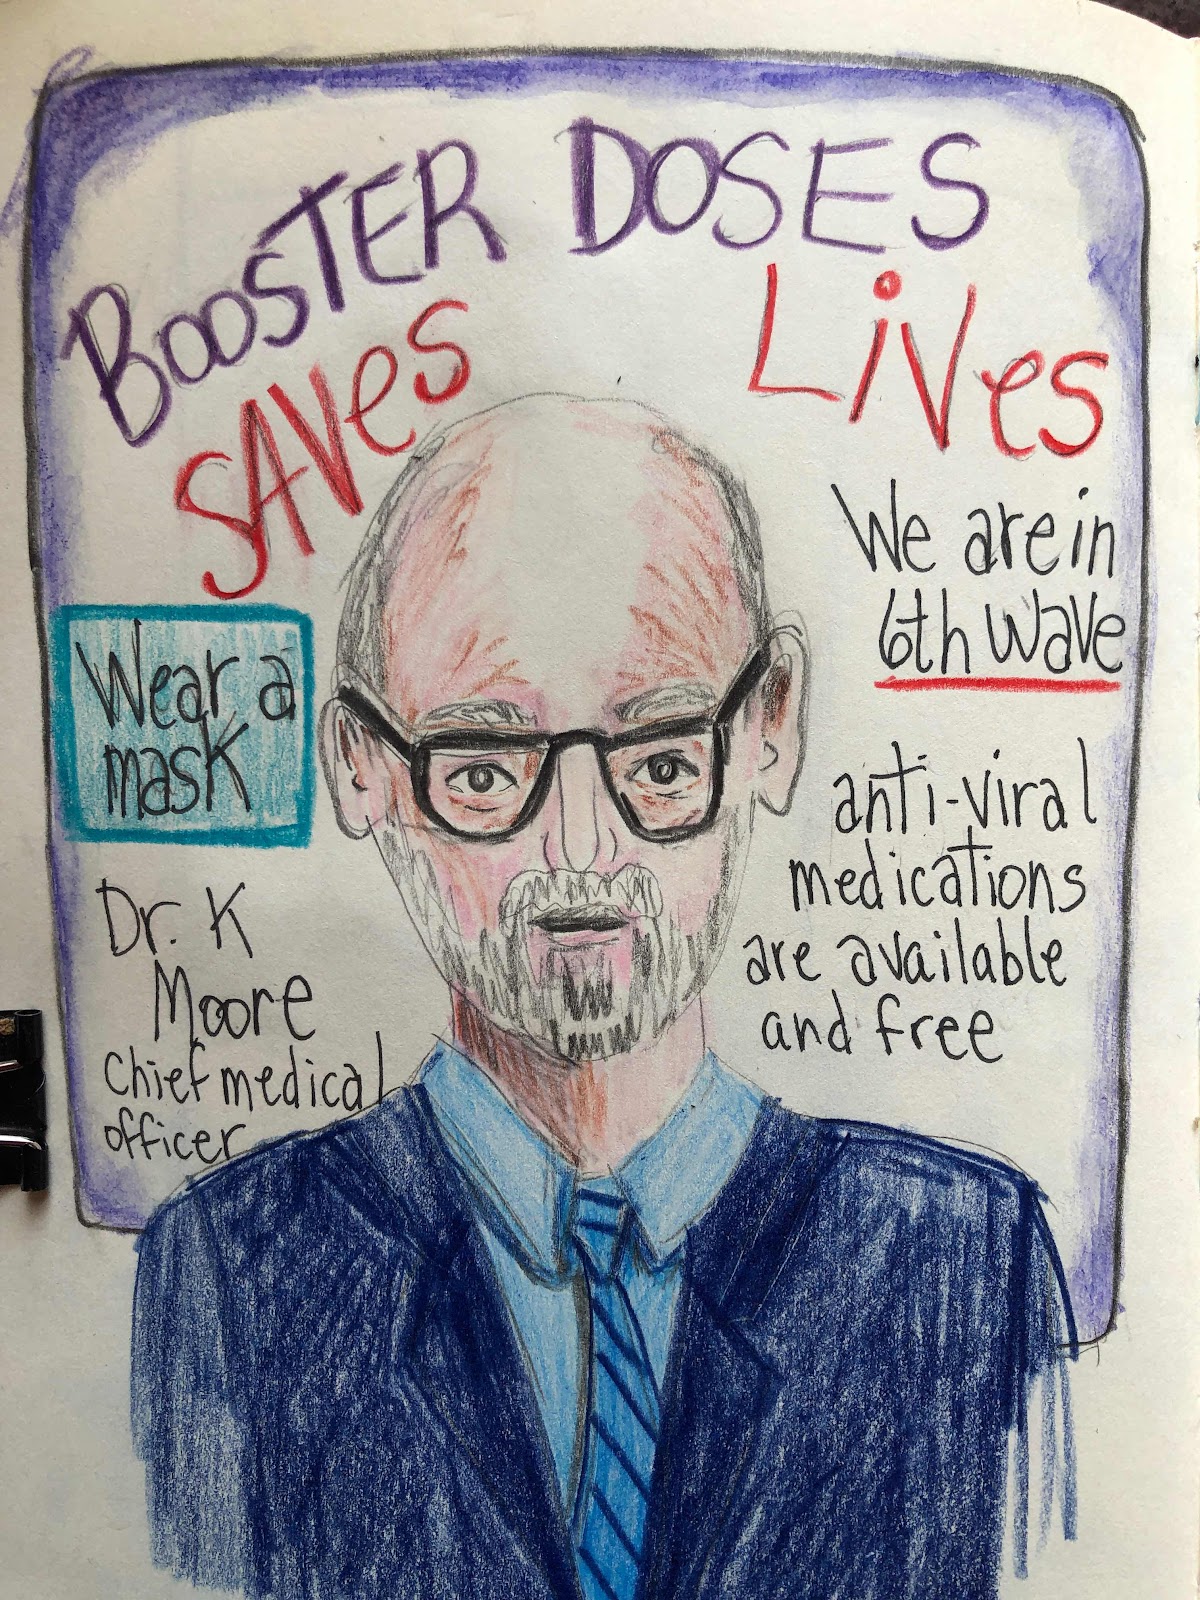 BOOSTER DOSES
SAVes Lives
We are in
6th wave
Wear a
mask
anti-viral
medications
are available
and free
Dr. K
Moore
chief medical
officer